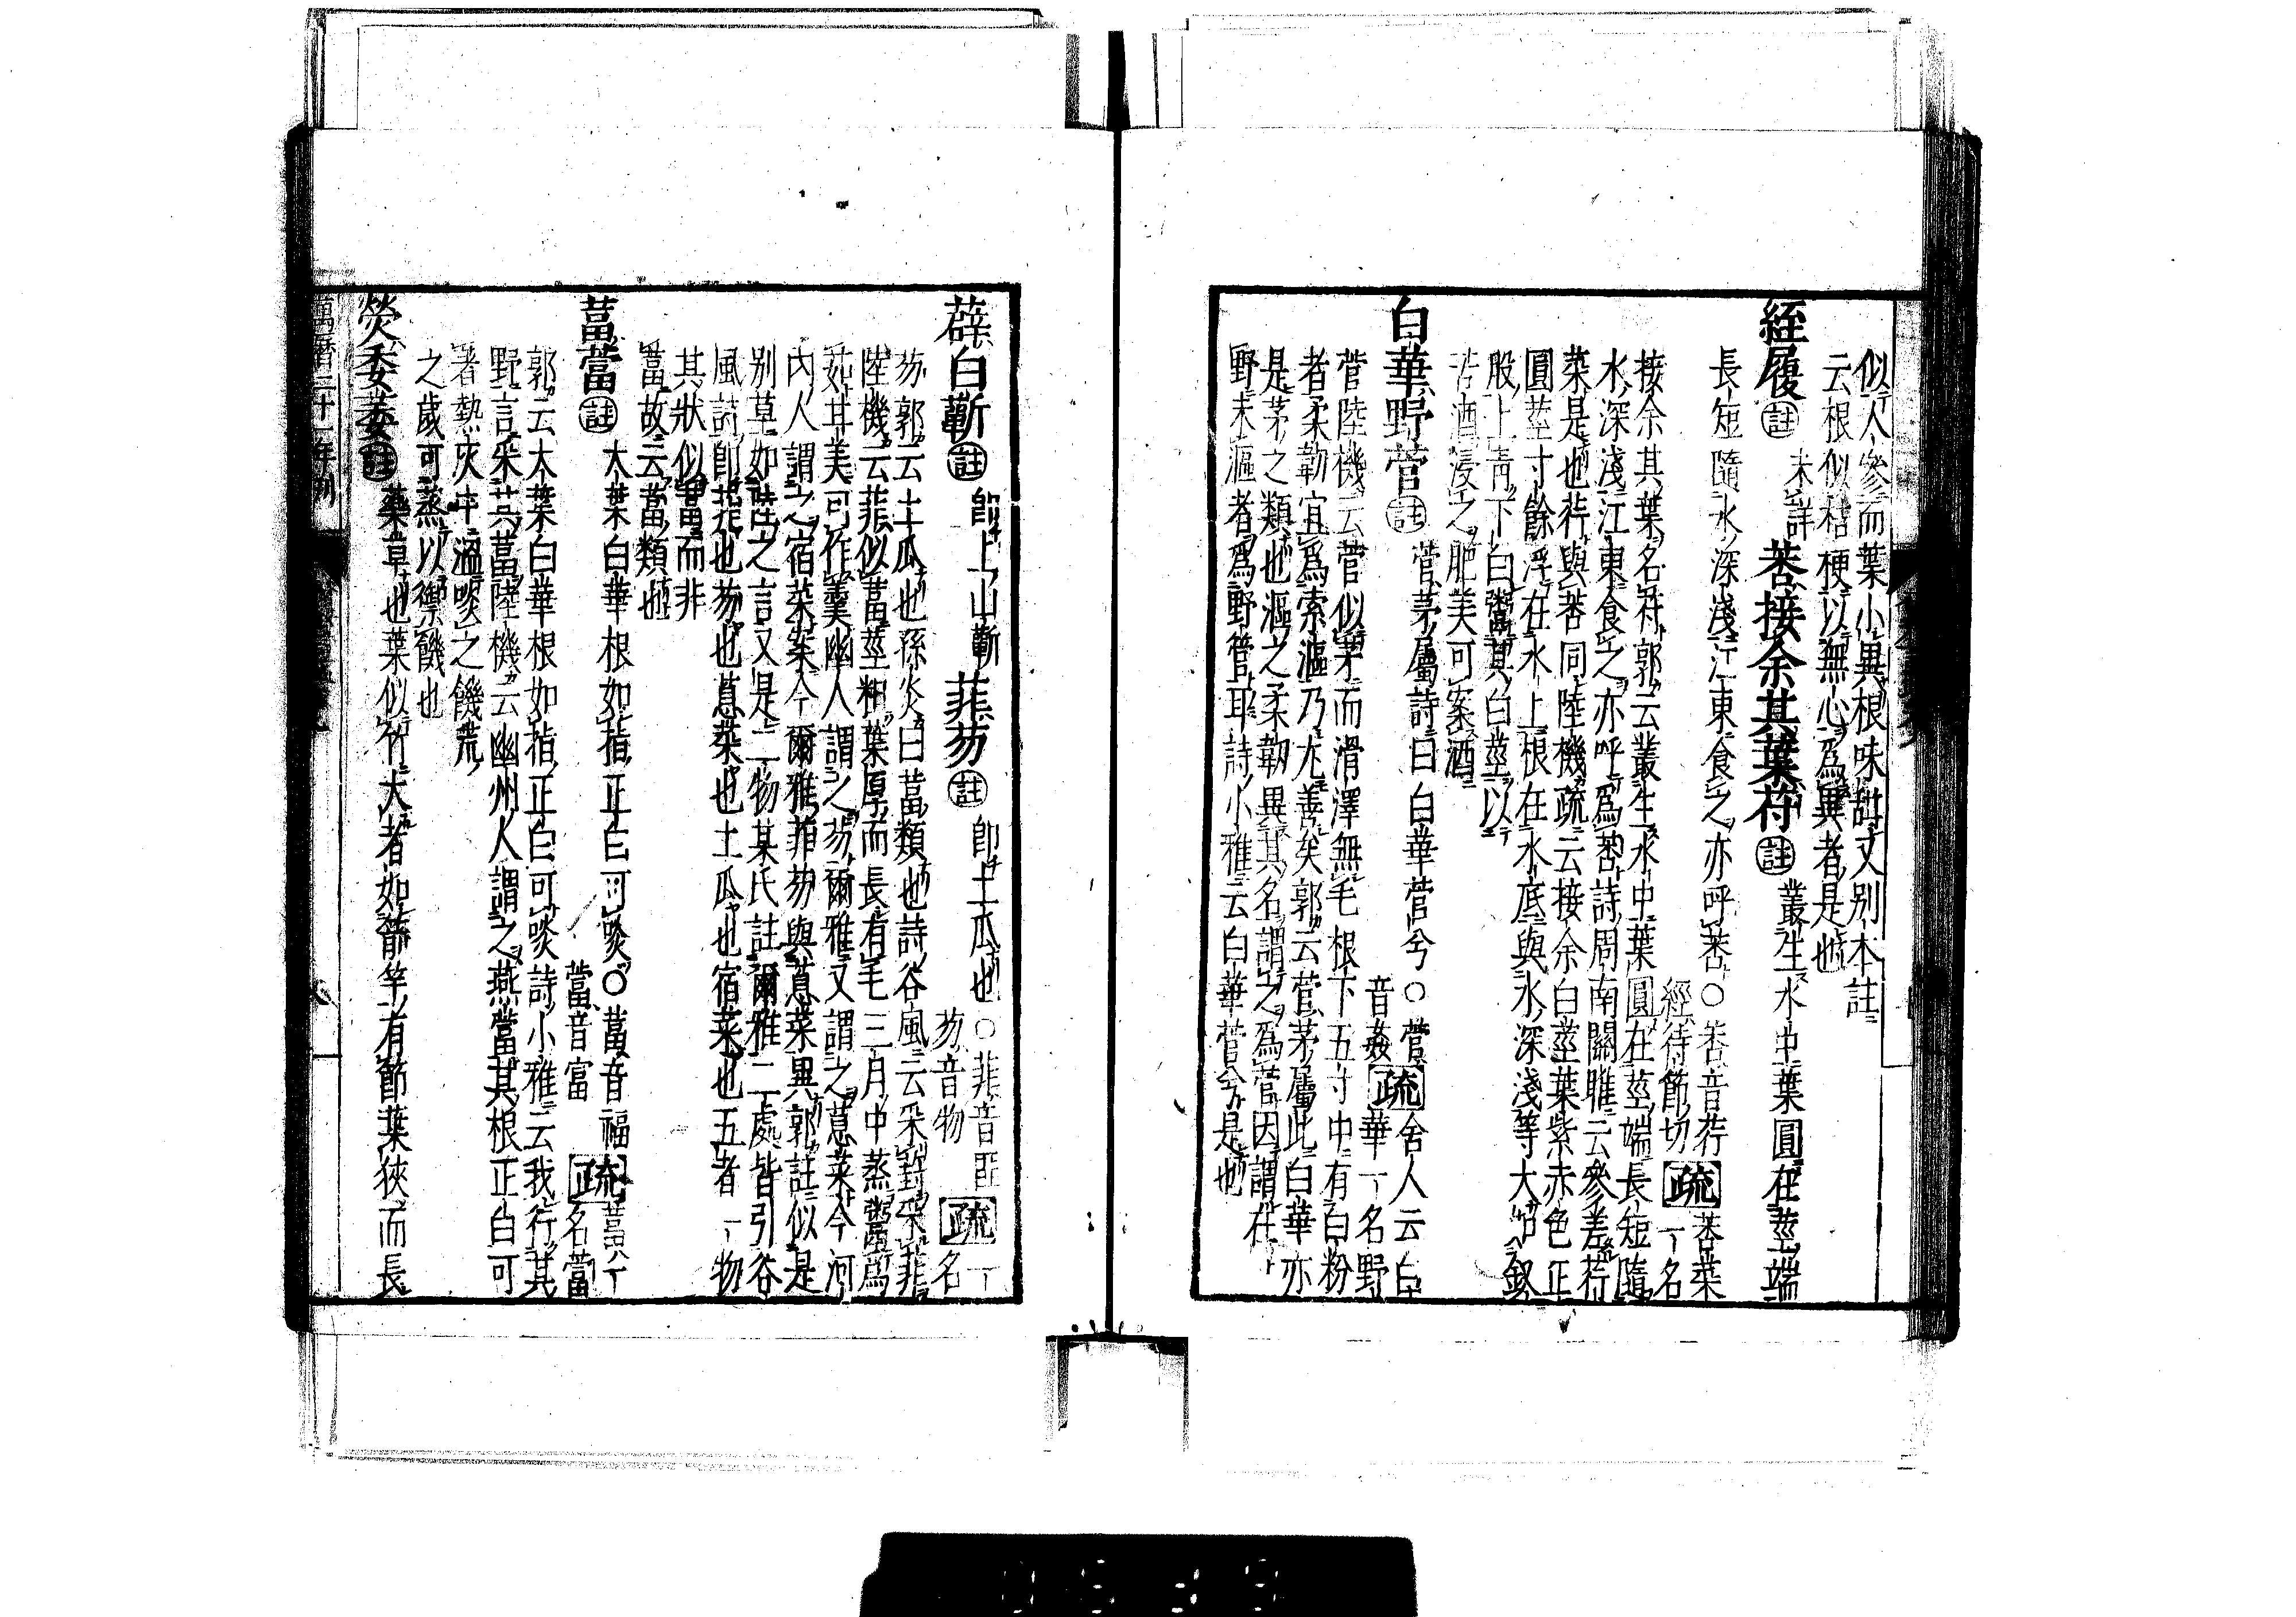 似人參而葉小異根味甜又別本註
云根似桔梗以無心爲異者是也
絰履註未詳 莕接余其葉苻註叢生水中葉圓在莖端
長短隨水深淺江東食之亦呼莕○莕音荇
絰待節切疏莕菜
一名
接余其葉名苻郭云叢生水中葉圓在莖端長短隨
水深淺江東食之亦呼爲莕詩周南關雎云參差荇
菜是也荇與莕同陸機疏云接余白莖葉紫赤色正
圓莖寸餘浮在水上根在水底與水深淺等大如釵
股上青下白鬻其白莖以
苦酒浸之肥美可案酒
白華野菅註菅茅屬詩曰白華菅兮○菅
音姦疏舍人云白
華一名野
菅陸機云菅似茅而滑澤無毛根下五寸中有白粉
者柔韌宜爲索漚乃尤善矣郭云菅茅屬此白華亦
是茅之類也漚之柔韌異其名謂之爲菅因謂在
野未漚者爲野菅耳詩小雅云白華菅兮是也
薜白蘄註卽上山蘄 菲芴註卽土瓜也○菲音匪
芴音物疏一
名
芴郭云土瓜也孫炎曰葍類也詩谷風云采葑采菲
陸機云菲似葍莖粗葉厚而長有毛三月中蒸鬻爲
茹甘美可作羹幽人謂之芴爾雅又謂之蒠菜今河
內人謂之宿菜案今爾雅菲芴與蒠菜異郭註似是
別草如陸之言又是二物某氏註爾雅二處皆引谷
風詩卽菲也芴也蒠菜也土瓜也宿菜也五者一物
其狀似葍而非
葍故云葍類也
葍䔰註大葉白華根如指正白可啖○葍音福
䔰音富疏葍一
名䔰
郭云大葉白華根如指正白可啖詩小雅云我行其
野言采其葍陸機云幽州人謂之燕䔰其根正白可
著熱灰中溫啖之饑荒
之歲可蒸以禦饑也
熒委萎註藥草也葉似竹大者如箭竿有節葉狹而長
萬曆二十一年刊